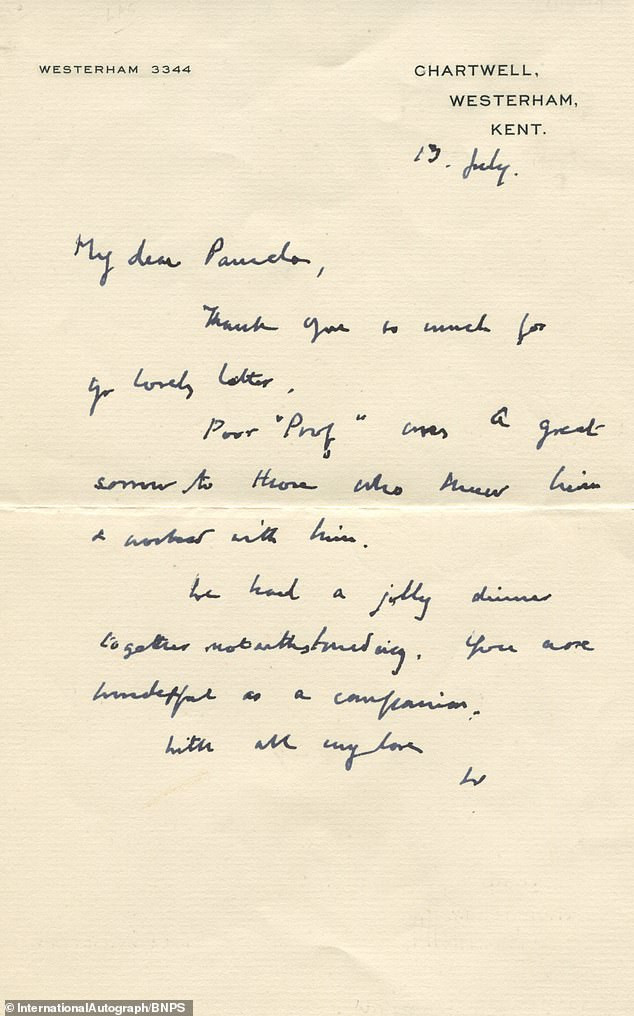 WESTERHAM 3344
CHARTWELL,
WESTERHAM,
KENT.
13. July.
My dear Pamela,
Thank you so much for
yr lovely letter.
Poor "Prof" was a great
sorrow to those who knew him
& worked with him.
We had a jolly dinner
together notwithstanding. You were
wonderful as a companion.
With all my love
W
© InternationalAutograph/BNPS